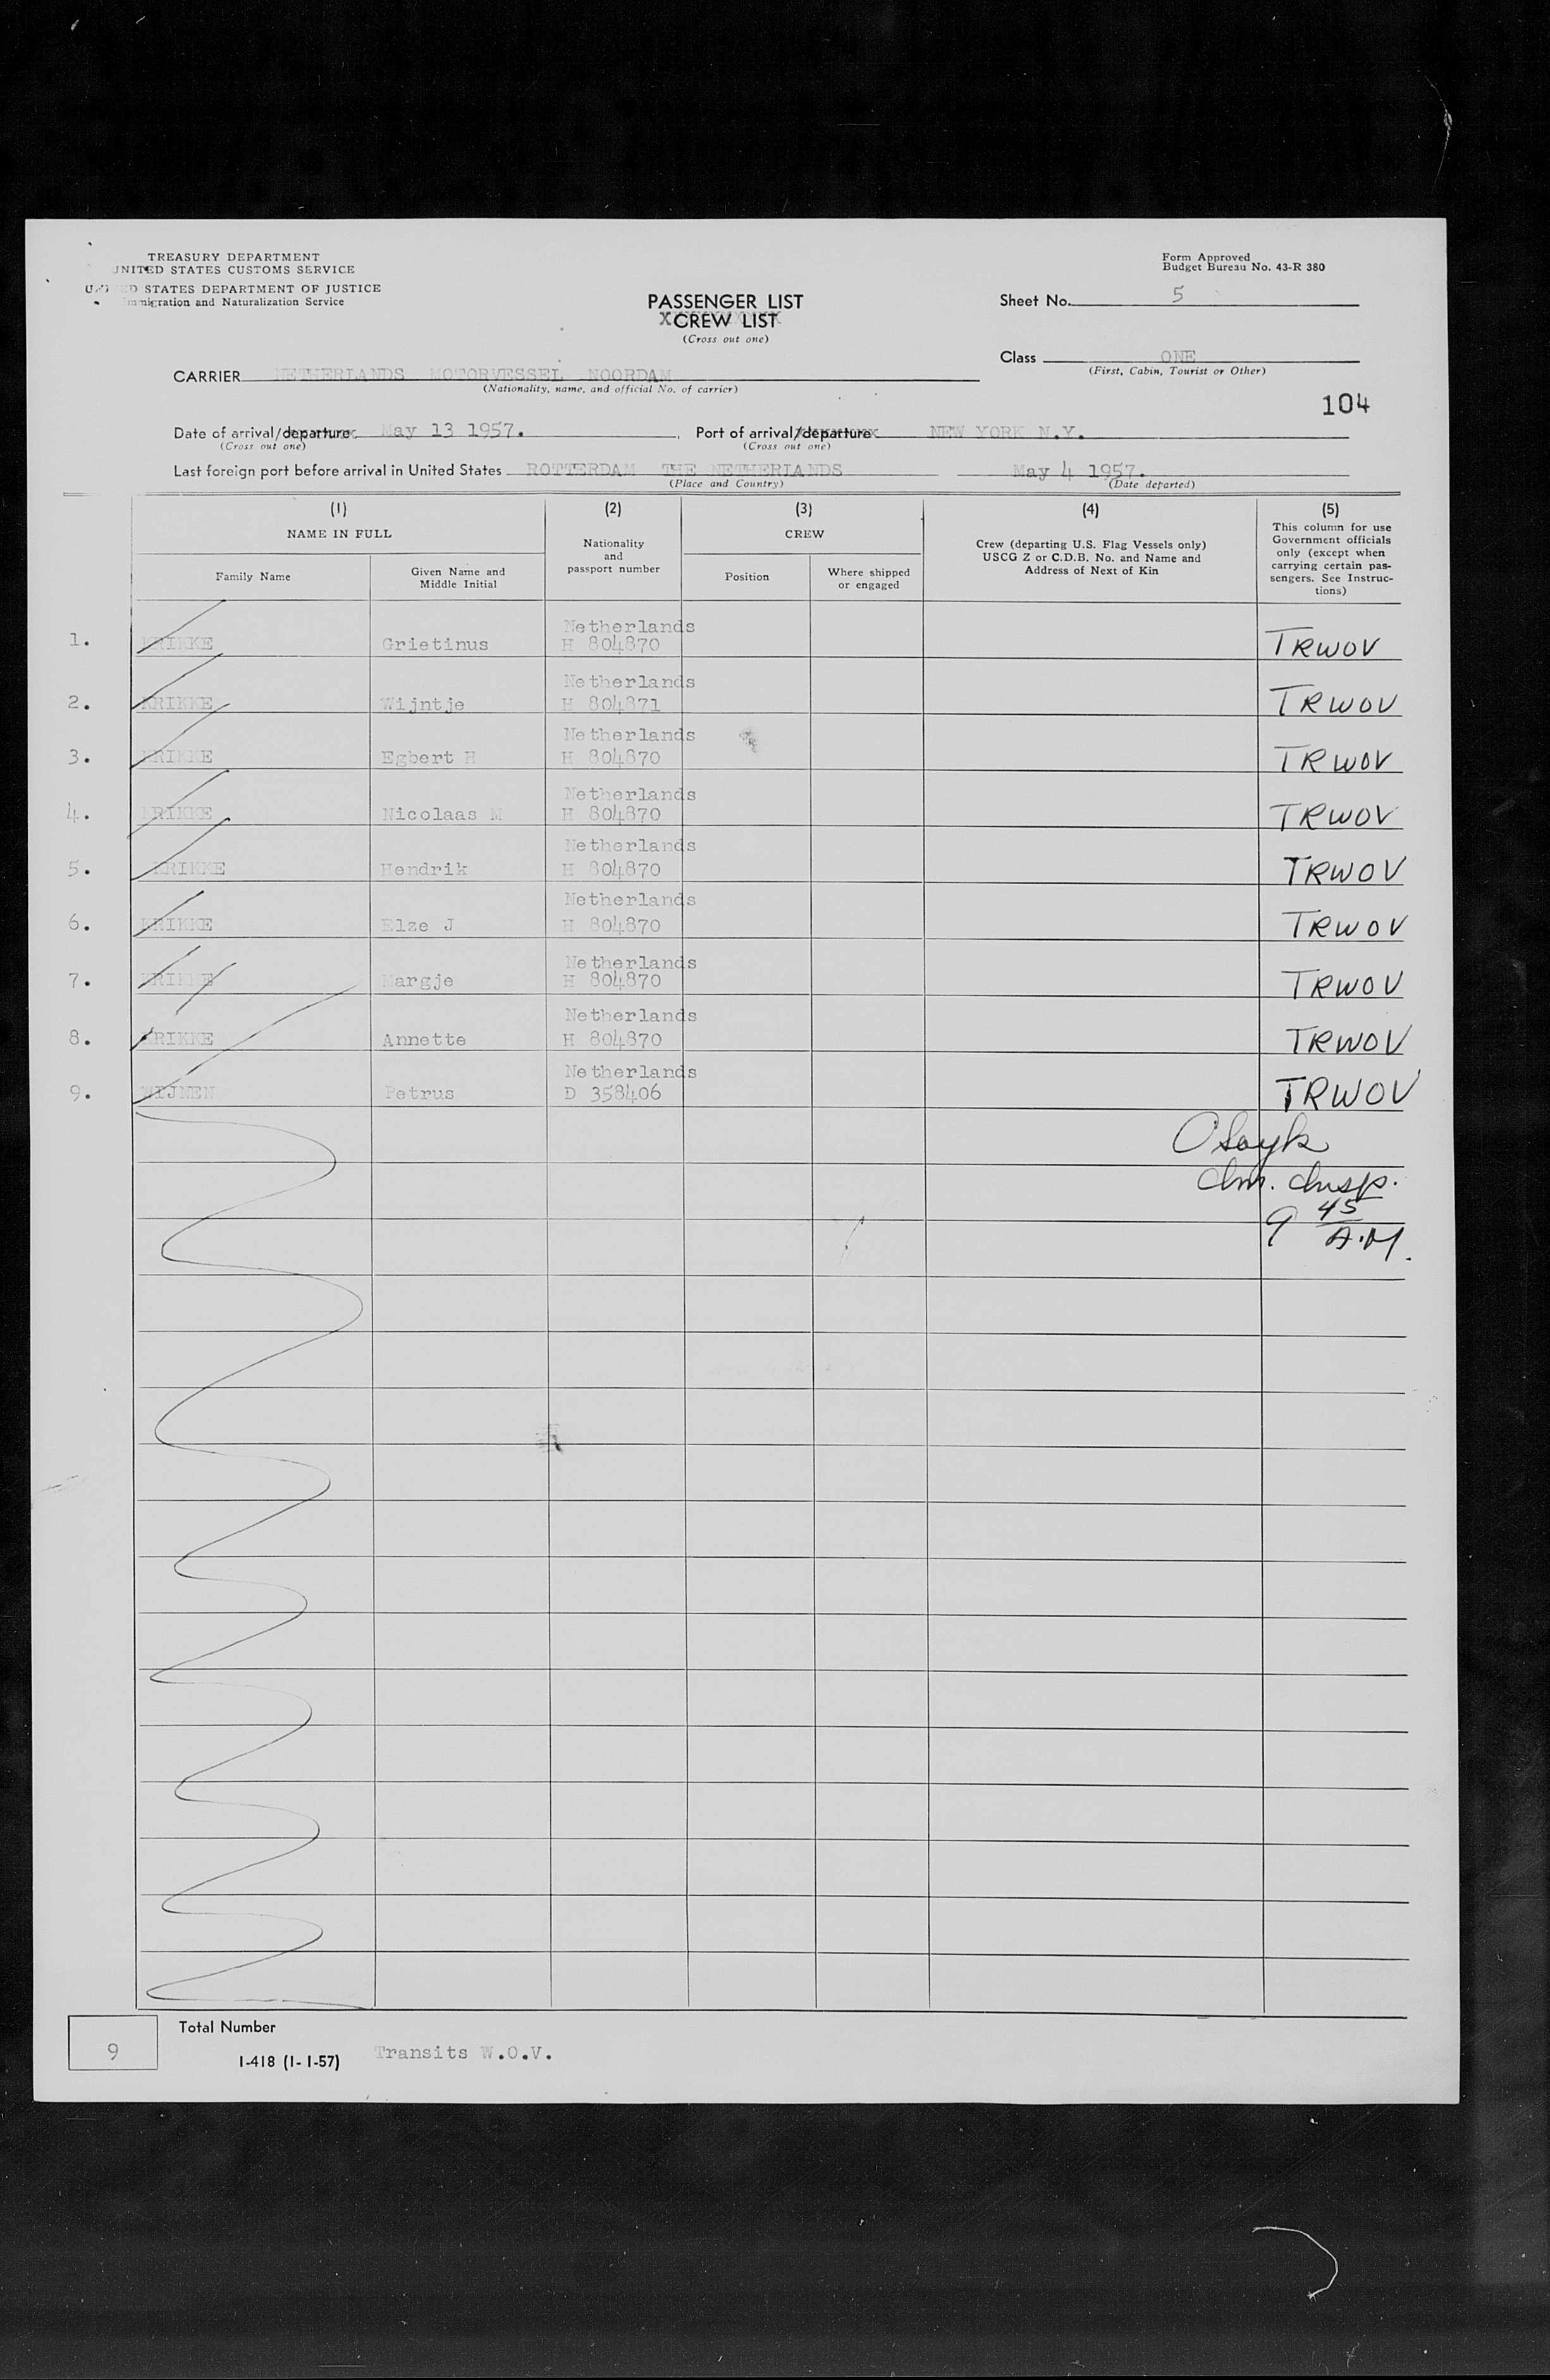 TREASURY DEPARTMENT
UNITED STATES CUSTOMS SERVICE
STATES DEPARTMENT OF JUSTICE
Immigration and Naturalization Service
Form Approved
Budget Bureau No. 43-R 380
PASSENGER LIST
CREW LIST
(Cross out one)
Sheet No. 5
Class ONE
(First, Cabin, Tourist or Other)
CARRIER NETHERLANDS MOTORVESSEL NOORDAM
(Nationality, name, and official No. of carrier)
104
Date of arrival/departure May 13 1957. , Port of arrival/departure NEW YORK N.Y.
(Cross out one) (Cross out one)
Last foreign port before arrival in United States ROTTERDAM THE NETHERLANDS May 4 1957.
(Place and Country) (Date departed)
(1) (2) (3) (4) (5)
NAME IN FULL
Family Name
Given Name and
Middle Initial
Nationality
and
passport number
CREW
Position
Where shipped
or engaged
Crew (departing U.S. Flag Vessels only)
USCG Z or C.D.B. No. and Name and
Address of Next of Kin
This column for use
Government officials
only (except when
carrying certain pas-
sengers. See Instruc-
tions)
Netherlands
1. KRIKKE Grietinus H 804870 TRWOV
Netherlands
2. KRIKKE Wijntje H 804871 TRWOV
Netherlands
3. KRIKKE Egbert H H 804870 TRWOV
Netherlands
4. KRIKKE Nicolaas M H 804870 TRWOV
Netherlands
5. KRIKKE Hendrik H 804870 TRWOV
Netherlands
6. KRIKKE Elze J H 804870 TRWOV
Netherlands
7. KRIKKE Margje H 804870 TRWOV
Netherlands
8. KRIKKE Annette H 804870 TRWOV
Netherlands
9. Petrus D 358406 TRWOV
Imm. Insp.
9 45
A.M.
9
Total Number
I-418 (1-1-57) Transits W.O.V.